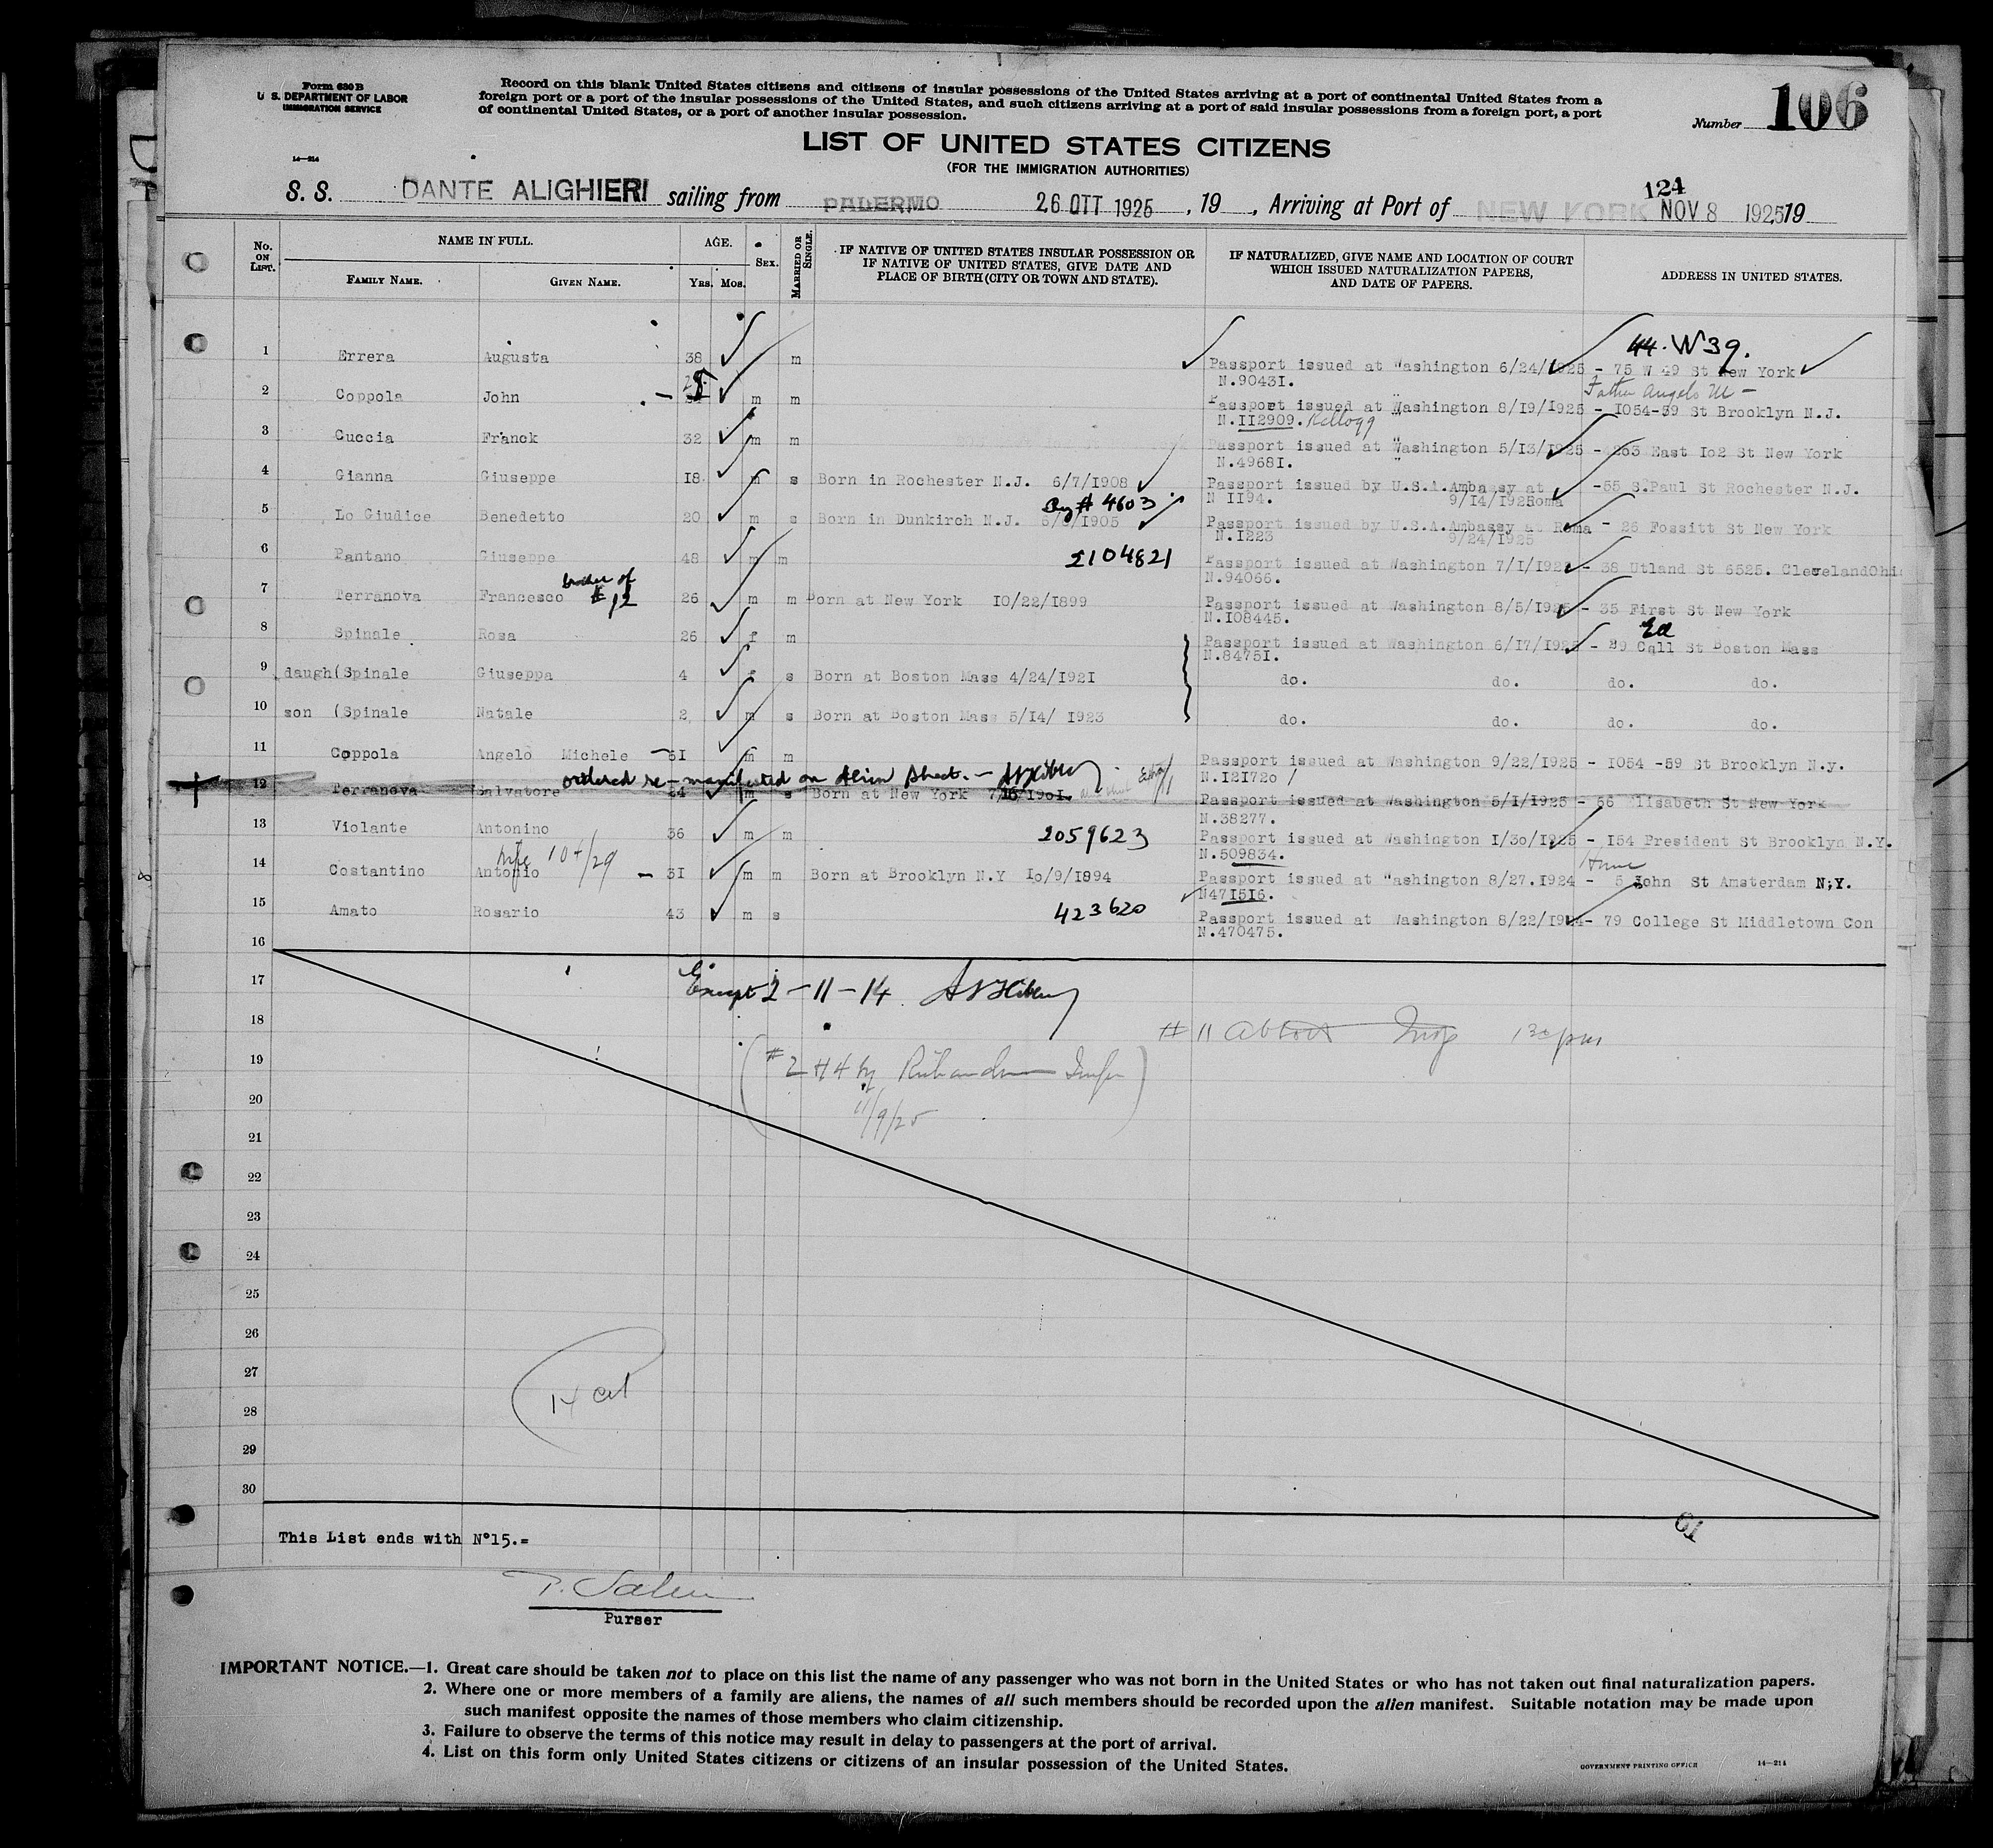 Form 630 B
U. S. DEPARTMENT OF LABOR
IMMIGRATION SERVICE
14—214
Record on this blank United States citizens and citizens of insular possessions of the United States arriving at a port of continental United States from a
foreign port or a port of the insular possessions of the United States, and such citizens arriving at a port of said insular possessions from a foreign port, a port
of continental United States, or a port of another insular possession.
Number 106
LIST OF UNITED STATES CITIZENS
(FOR THE IMMIGRATION AUTHORITIES)
124
S. S. DANTE ALIGHIERI sailing from PALERMO 26 OTT 1925, 19 , Arriving at Port of NEW YORK NOV 8 1925 19
No. ON LIST. NAME IN FULL. AGE. SEX. MARRIED OR SINGLE. IF NATIVE OF UNITED STATES INSULAR POSSESSION OR IF NATIVE OF UNITED STATES, GIVE DATE AND PLACE OF BIRTH (CITY OR TOWN AND STATE). IF NATURALIZED, GIVE NAME AND LOCATION OF COURT WHICH ISSUED NATURALIZATION PAPERS, AND DATE OF PAPERS. ADDRESS IN UNITED STATES.
FAMILY NAME. GIVEN NAME. YRS. MOS.
44. W 39.
1 Errera Augusta 38 m Passport issued at Washington 6/24/1925 - 75 W 49 St New York
N.9043I.
Father Angelo M -
2 Coppola John - m m Passport issued at Washington 8/19/1925 - I054-59 St Brooklyn N.J.
N.II2909. Kellogg
3 Cuccia Franck 32 m m Passport issued at Washington 5/13/1925 - 263 East Io2 St New York
N.4968I.
4 Gianna Giuseppe I8 m s Born in Rochester N.J. 6/7/I908 Passport issued by U.S.A.Ambassy at -55 S.Paul St Rochester N.J.
N II94. 9/I4/I925oma
# 4603
5 Lo Giudice Benedetto 20 m s Born in Dunkirch N.J. /I905 Passport issued by U.S.A.Ambassy at Roma - 26 Fossitt St New York
N.I223 9/24/I925
6 Pantano Giuseppe 48 m m 2104821 Passport issued at Washington 7/I/192 - 38 Utland St 6525. ClevelandOhi
N.94066.
brother of # 12
7 Terranova Francesco 26 m m Born at New York I0/22/I899 Passport issued at Washington 8/5/I925 - 35 First St New York
N.I08445.
8 Spinale Rosa 26 f m Passport issued at Washington 6/I7/I925 - 39 Call St Boston Mass
N.8475I.
9 daugh(Spinale Giuseppa 4 f s Born at Boston Mass 4/24/I92I do. do. do. do.
10 son (Spinale Natale 2 m s Born at Boston Mass 5/I4/ I923 do. do. do. do.
11 Coppola Angelo Michele - 5I m m Passport issued at Washington 9/22/I925 - I054 -59 St Brooklyn N.y.
N.I2I72o /
ordered re-manifested on Alien Sheet. -
12 Terranova Salvatore 24 m s Born at New York 7/16/I90I. Passport issued at Washington 5/I/I925 - 66 Elisabeth St New York
N.38277.
13 Violante Antonino 36 m m 2059623 Passport issued at Washington I/3o/I925 - I54 President St Brooklyn N.Y.
N.509834.
Wife 104/29
14 Costantino Antonio - 3I m m Born at Brooklyn N.Y Io/9/I894 Passport issued at Washington 8/27.I924 - 5 John St Amsterdam N.Y.
N47I5I6.
15 Amato Rosario 43 m s 423620 Passport issued at Washington 8/22/I924- 79 College St Middletown Con
N.470475.
16
17
Except 2 - 11 - 14.
18
# 11 Abbott Insp
19
#2 Insp
20
11/9/25
21
22
23
24
25
26
27
28
29
30
This List ends with N°15.=
Purser
IMPORTANT NOTICE.—1. Great care should be taken not to place on this list the name of any passenger who was not born in the United States or who has not taken out final naturalization papers.
2. Where one or more members of a family are aliens, the names of all such members should be recorded upon the alien manifest. Suitable notation may be made upon
such manifest opposite the names of those members who claim citizenship.
3. Failure to observe the terms of this notice may result in delay to passengers at the port of arrival.
4. List on this form only United States citizens or citizens of an insular possession of the United States.
GOVERNMENT PRINTING OFFICE 14—214